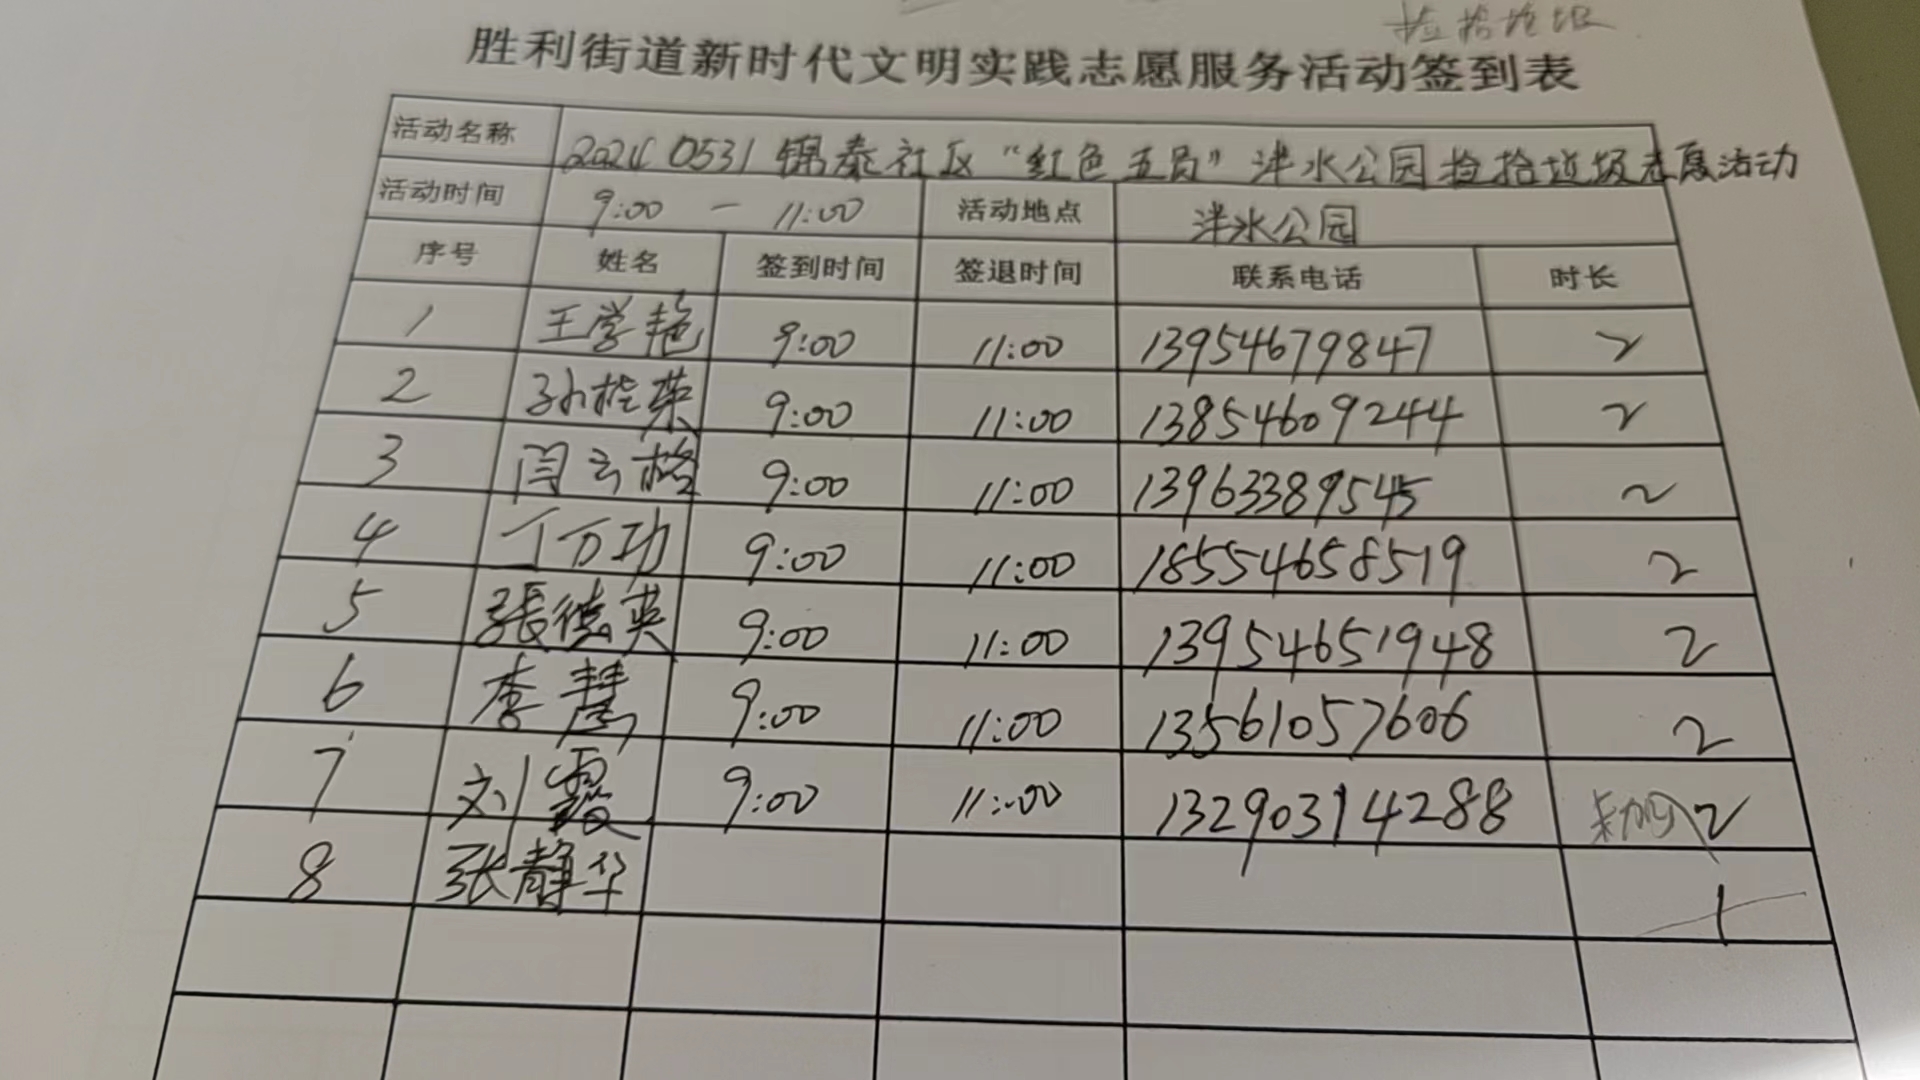 捡拾垃圾
胜利街道新时代文明实践志愿服务活动签到表
活动名称 20240531锦泰社区“红色五员”泮水公园捡拾垃圾志愿活动
活动时间 9:00 — 11:00 活动地点 泮水公园
序号 姓名 签到时间 签退时间 联系电话 时长
1 王学艳 9:00 11:00 13954679847 2
2 孙桂荣 9:00 11:00 13854609244 2
3 闫云格 9:00 11:00 13963389545 2
4 丁万功 9:00 11:00 18554658519 2
5 張德英 9:00 11:00 13954651948 2
6 李慧 9:00 11:00 13561057606 2
7 刘霞 9:00 11:00 13290314288 2
8 张静华 1